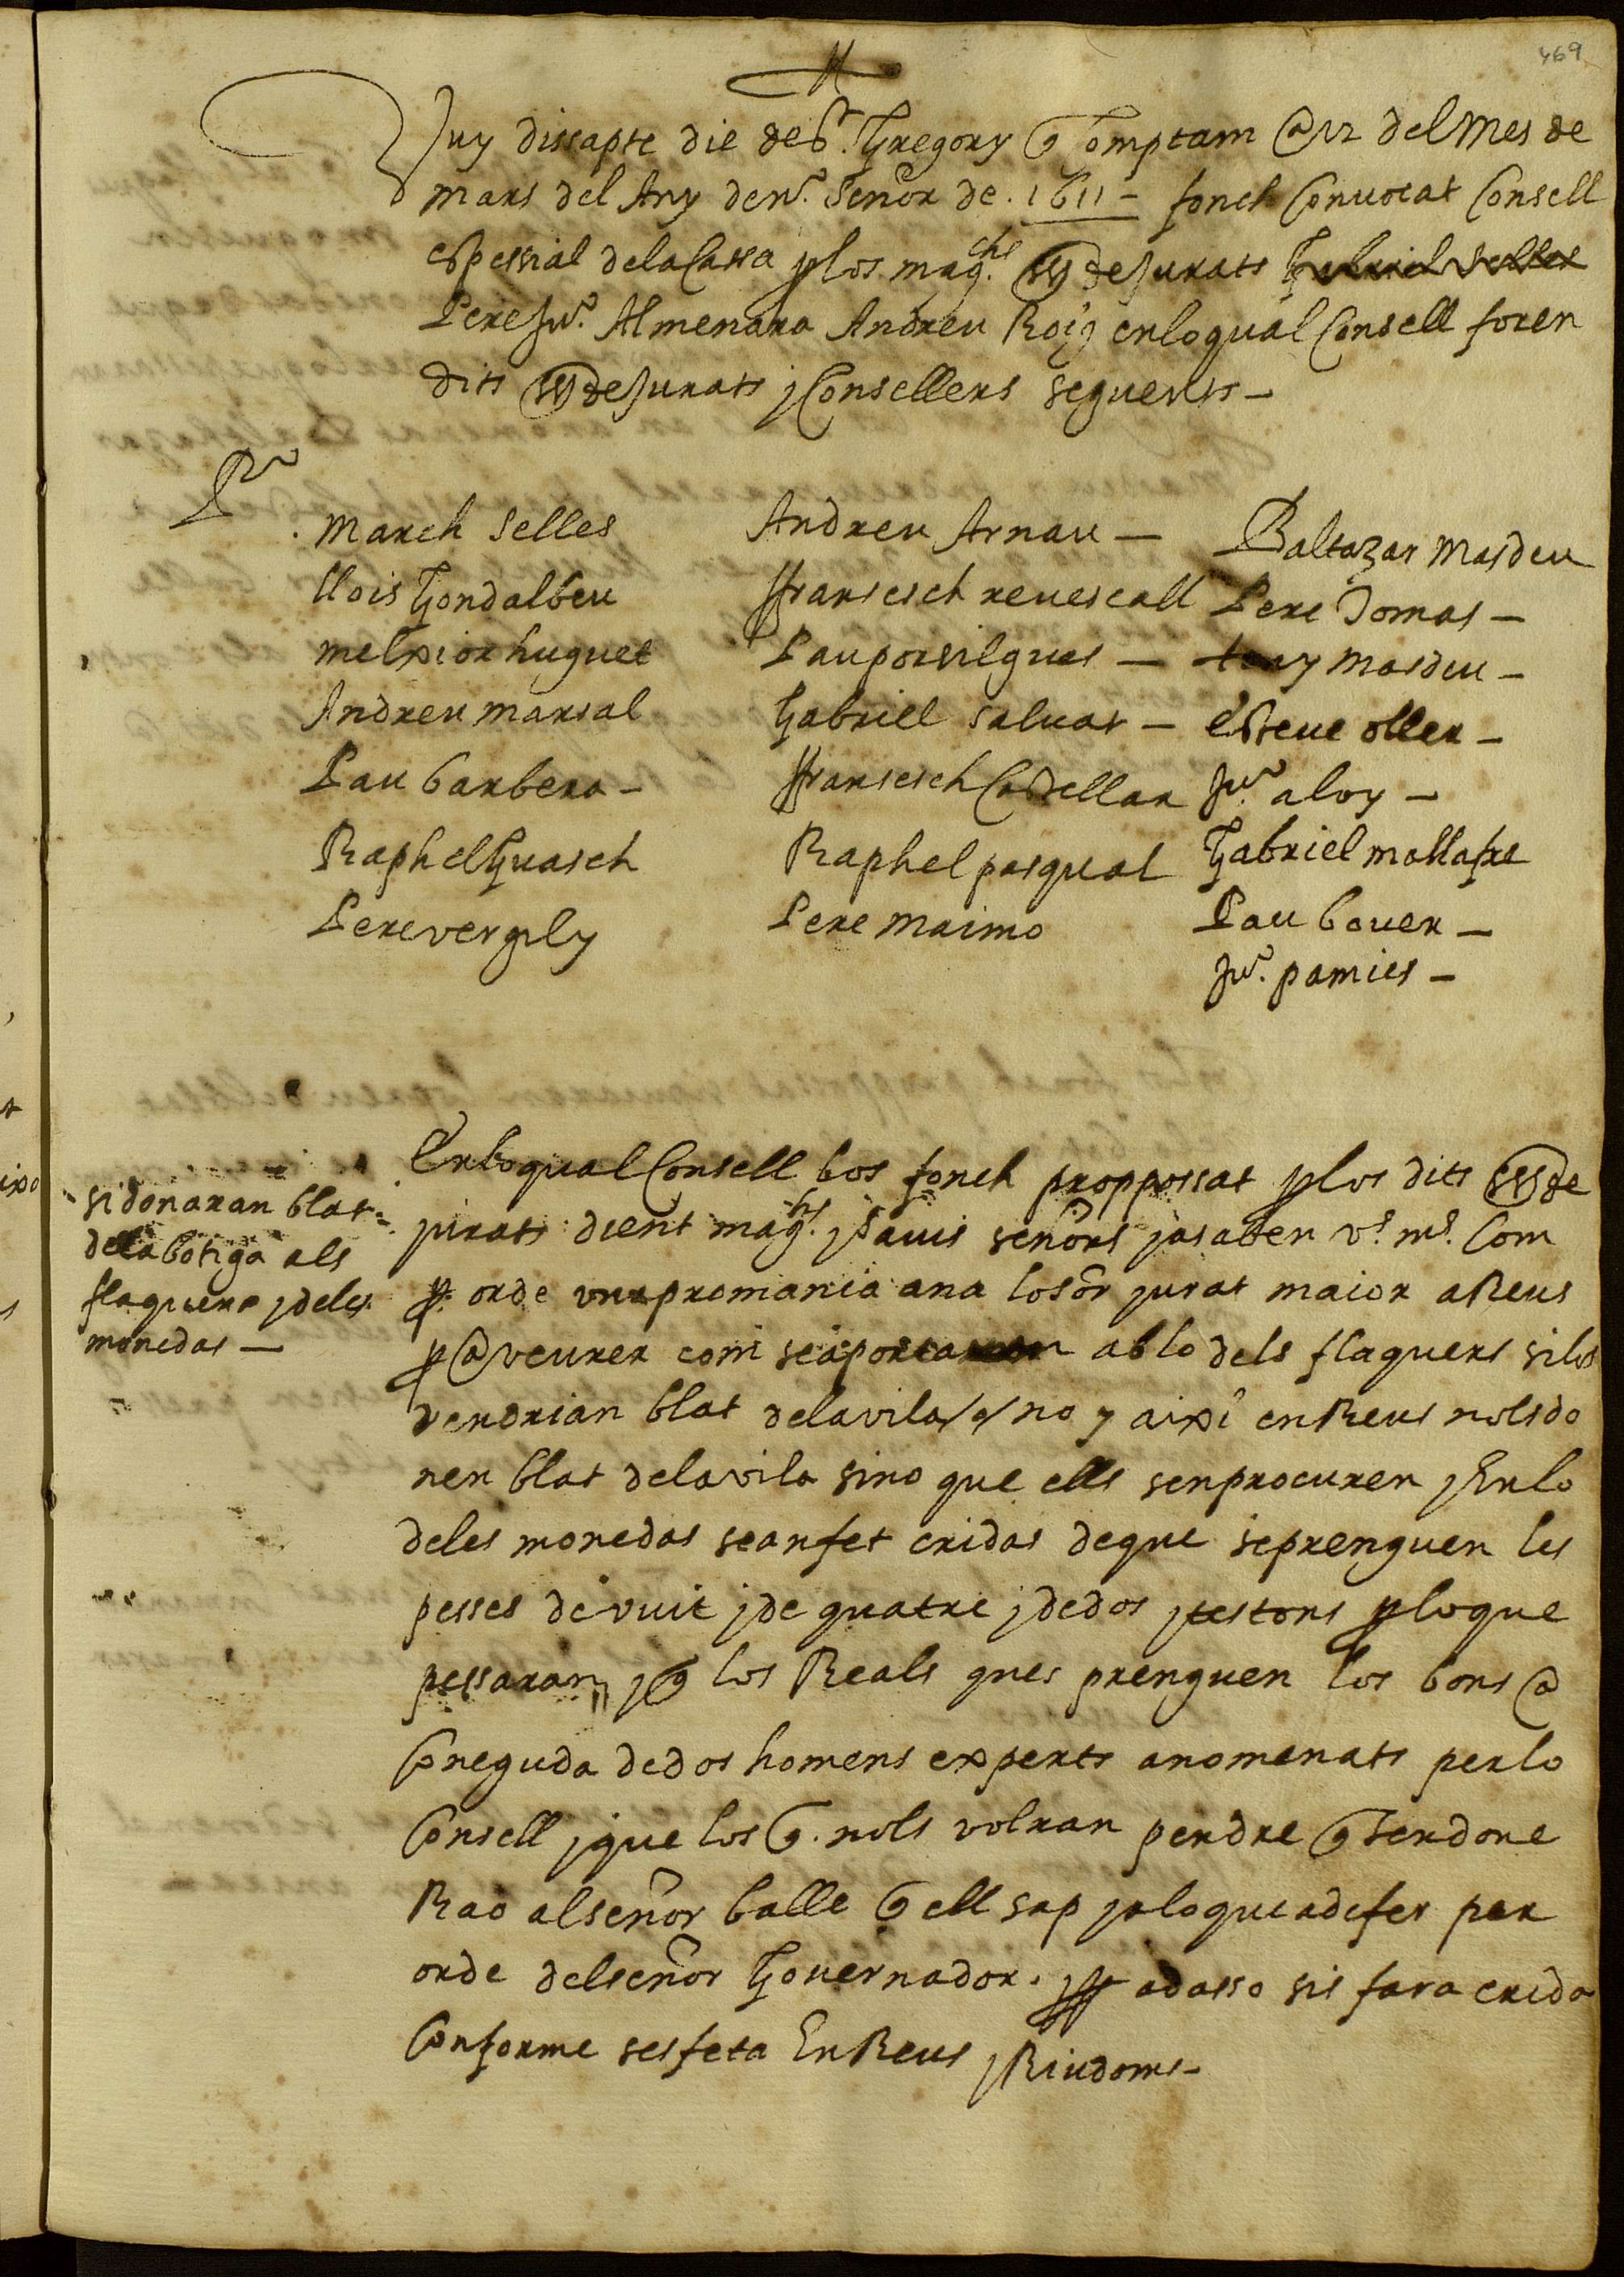 469
Vuy dissapte die de St. Gregory q Comptam @ 12 del mes de
mars del Any de nr. Señor de . 1611 - fonch Convocat Consell
espessial dela Cassa plos magchs. SSrs de Jurats Gabriel Selles
Pere Jun. Almenara Andreu Roig enloqual Consell foren
dits SSrs de Jurats y Consellers seguents -
Po
March Selles
llois Gondalbeu
melxior huguet
Andreu marsal
Pau barbera -
Raphel Guasch
Pere vergily
Andreu Arnau -
ffransesch revescall
Pau porsilgues -
Gabriel salvat -
ffransesch Castellar
Raphel pasqual
Pere Maimo
Baltazar masdeu
Pere Tomas -
tony masdeu -
esteve oller -
Jun. aloy -
Gabriel mallafre
Pau bover -
Jun. pamies -
si donaran blat
dela botiga als
flaquers y deles
monedas -
Enloqual Consell los fonch proppossat plos dits SSrs de
jurats dient maghs. y savis señors ja saben vs. ms. Com
p. orde vre promania ana lo sor jurat maior a Reus
p @ veurer com se aportaven ab lo dels flaquers silos
vendrian blat dela vila / o / no y aixi en Reus nols do
nen blat dela vila sino que ells senprocuren y Enlo
deles monedas sean fet cridas deque seprenguen les
pesses de vuit y de quatre y dedos y testons ploque
pessaran y q los Reals ques prenguen los bons @
Coneguda dedos homens experts anomenats perlo
Consell y que los q. nols volran pendre q sendone
Rao alseñor balle q ell sap ja loque adefer per
orde delseñor Governador. y pp adasso sis fara crida
Conforme sesfeta En Reus y Riudoms -